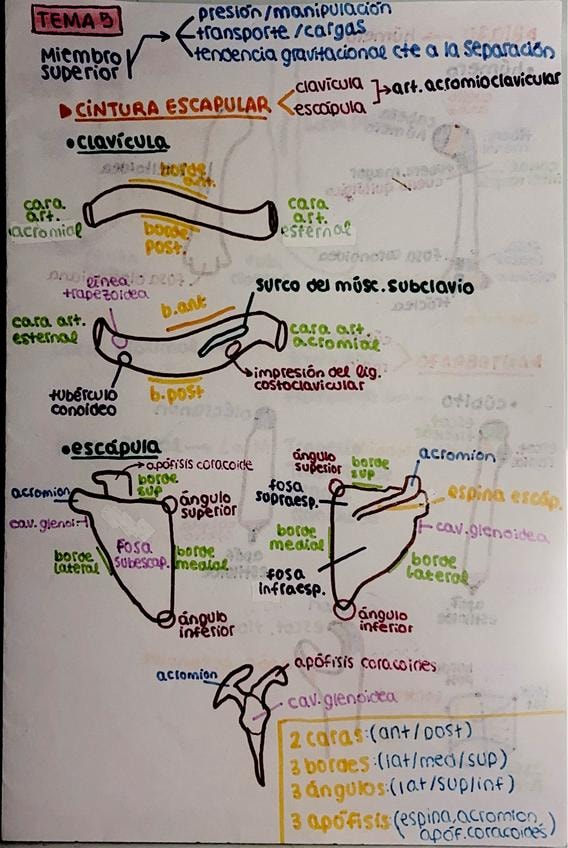 TEMA 5
Miembro
superior
presión/manipulación
transporte/cargas
tendencia gravitacional cte a la separación
CINTURA ESCAPULAR
clavícula
escápula
art. acromioclavicular
• clavícula
borde
ant.
cara
art.
acromial
cara
art.
esternal
borde
post.
línea
trapezoidea
b.ant
surco del músc. subclavio
cara art.
esternal
cara art.
acromial
tubérculo
conoideo
b.post
impresión del lig.
costoclavicular
• escápula
apófisis coracoide
acromion
borde
sup
ángulo
superior
cav. glenoi
borde
lateral
Fosa
subescap.
borde
medial
ángulo
inferior
ángulo
superior
borde
sup
acromion
fosa
supraesp.
espina escáp.
cav. glenoidea
borde
medial
borde
lateral
fosa
infraesp.
ángulo
inferior
acromion
apófisis coracoides
cav. glenoidea
2 caras: (ant/post)
3 bordes: (lat/med/sup)
3 ángulos: (lat/sup/inf)
3 apófisis (espina, acromion,
apóf. coracoides)